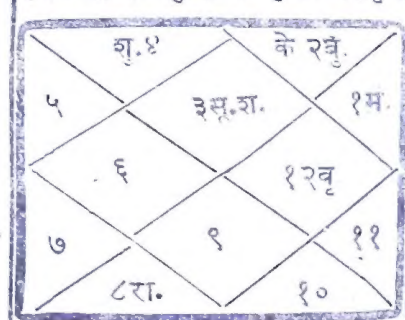 शु.४ के २बु.
५ ३सू.श. १मं.
६ १२वृ
७ ९ ११
८रा. १०